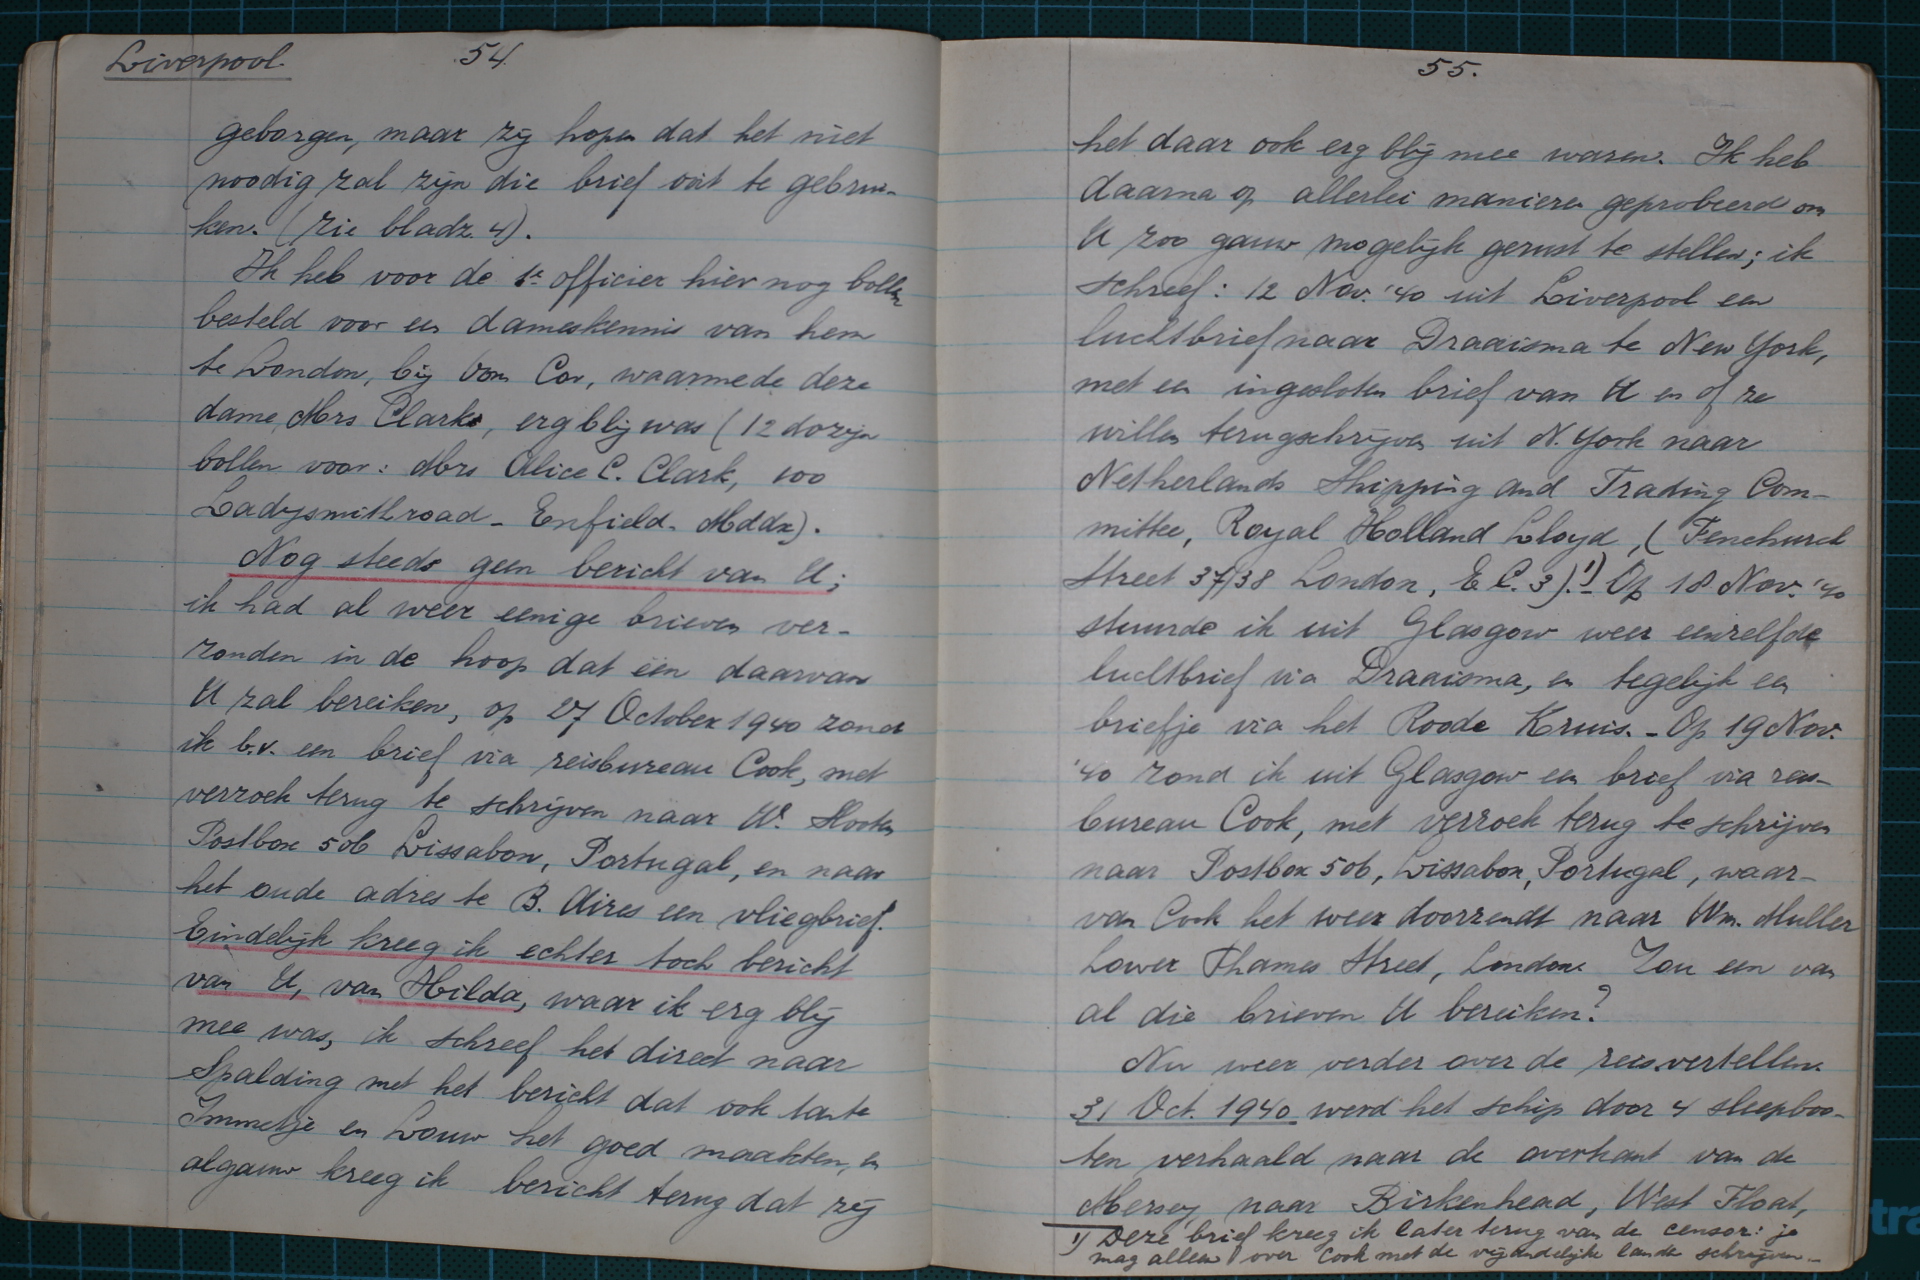 Liverpool.
54.
geborgen, maar zij hopen dat het niet
noodig zal zijn die brief ooit te gebrui-
ken. (zie bladz. 4).
Ik heb voor de 1e officier hier nog bollen
besteld voor een dameskennis van hem
te London, bij Oom Cor, waarmede deze
dame, Mrs Clark, erg blij was (12 dozijn
bollen voor: Mrs Alice C. Clark, 100
Ladysmithroad - Enfield - Mddx).
Nog steeds geen bericht van U;
ik had al weer eenige brieven ver-
zonden in de hoop dat één daarvan
U zal bereiken, op 27 October 1940 zond
ik b.v. een brief via reisbureau Cook, met
verzoek terug te schrijven naar W.
Postbox 506 Lissabon, Portugal, en naar
het oude adres te B. Aires een vliegbrief.
Eindelijk kreeg ik echter toch bericht
van U, van Hilda, waar ik erg blij
mee was, ik schreef het direct naar
Spalding met het bericht dat ook tante
Immetje en Louw het goed maakten, en
algauw kreeg ik bericht terug dat zij
55.
het daar ook erg blij mee waren. Ik heb
daarna op allerlei manieren geprobeerd om
U zoo gauw mogelijk gerust te stellen; ik
schreef: 12 Nov. '40 uit Liverpool een
luchtbrief naar Draaisma te New York,
met een ingesloten brief van U en of ze
willen terugschrijven uit N. York naar
Netherlands Shipping and Trading Com-
mittee, Royal Holland Lloyd, (Fenchurch
Street 37/38 London, E.C.3).1) Op 18 Nov. '40
stuurde ik uit Glasgow weer eenzelfde
luchtbrief via Draaisma, en tegelijk een
briefje via het Roode Kruis. - Op 19 Nov.
'40 zond ik uit Glasgow een brief via reis-
bureau Cook, met verzoek terug te schrijven
naar Postbox 506, Lissabon, Portugal, waar-
van Cook het weer doorzendt naar Wm. Muller
Lower Thames Street, London. Zou een van
al die brieven U bereiken?
Nu weer verder over de reis vertellen.
31 Oct. 1940 werd het schip door 4 sleepboo-
ten verhaald naar de overkant van de
Mersey naar Birkenhead, West Float,
1) Deze brief kreeg ik later terug van de censor: je
mag alleen over Cook met de vijandelijke landen schrijven.-